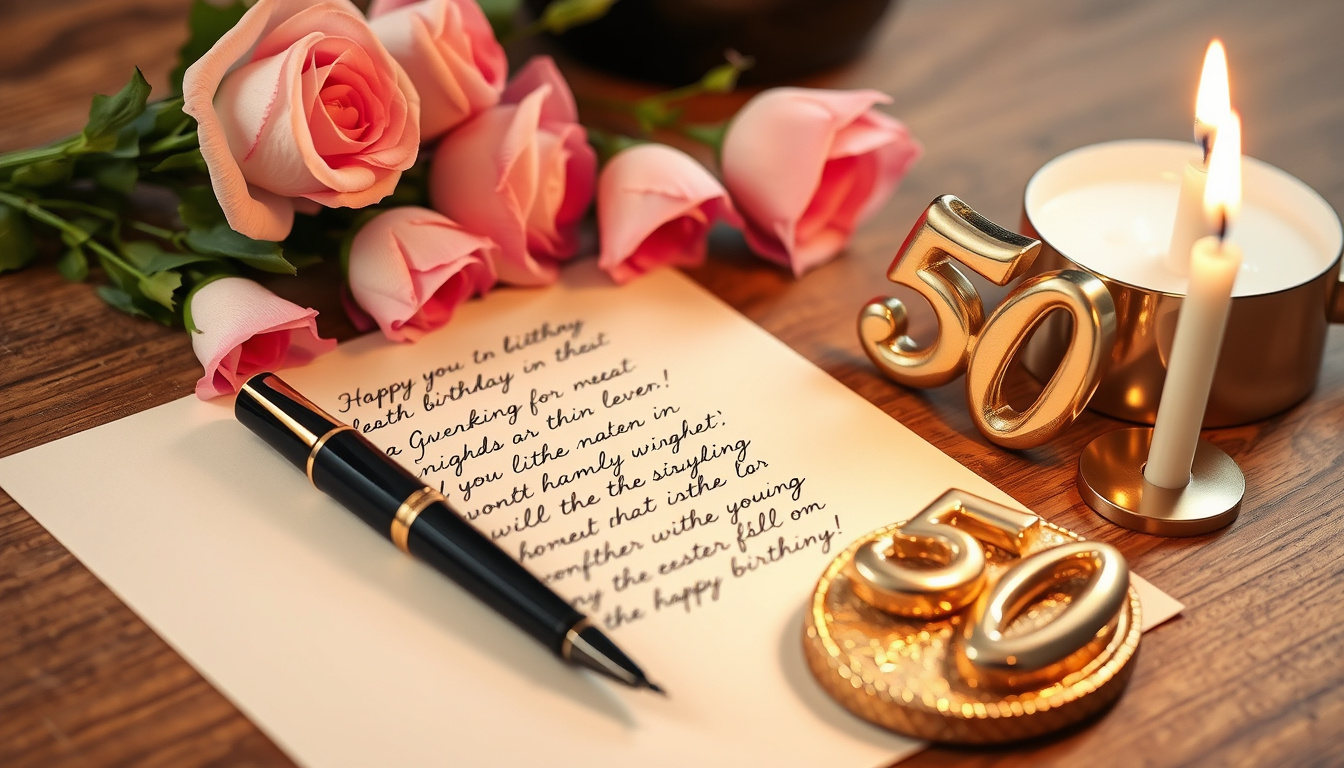 Happy you tn birthay
death birthday in theit
a Gverking for meest
nighds ar thin lever.!
you lithe naten in
wontt hamly wirghet!
will the the sisyling
homest that isthe lor
wonfther withe youing
ny the eester fall om
the happy birthiny!
50
50